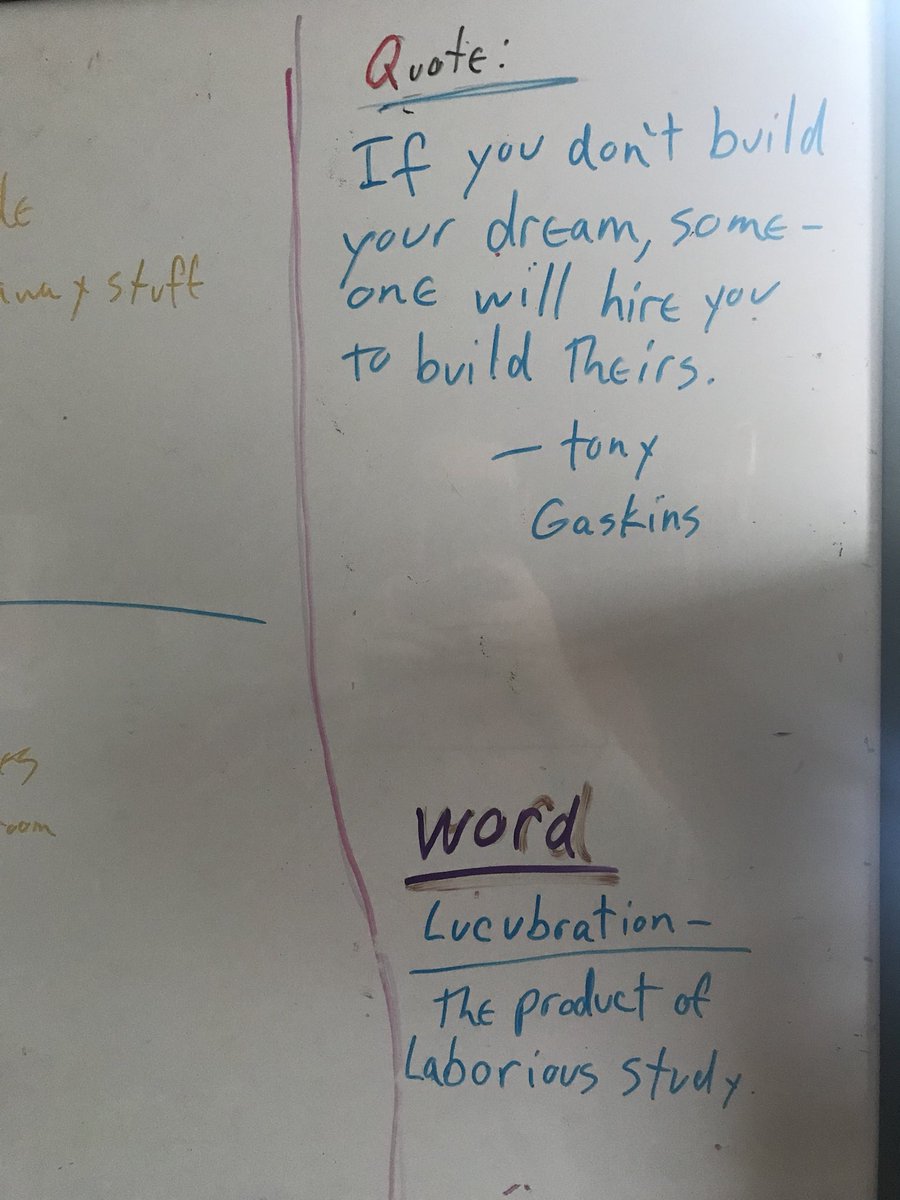 Quote:
If you don't build
your dream, some-
one will hire you
to build Theirs.
- tony
Gaskins
stuff
word
Lucubration -
the product of
Laborious study.